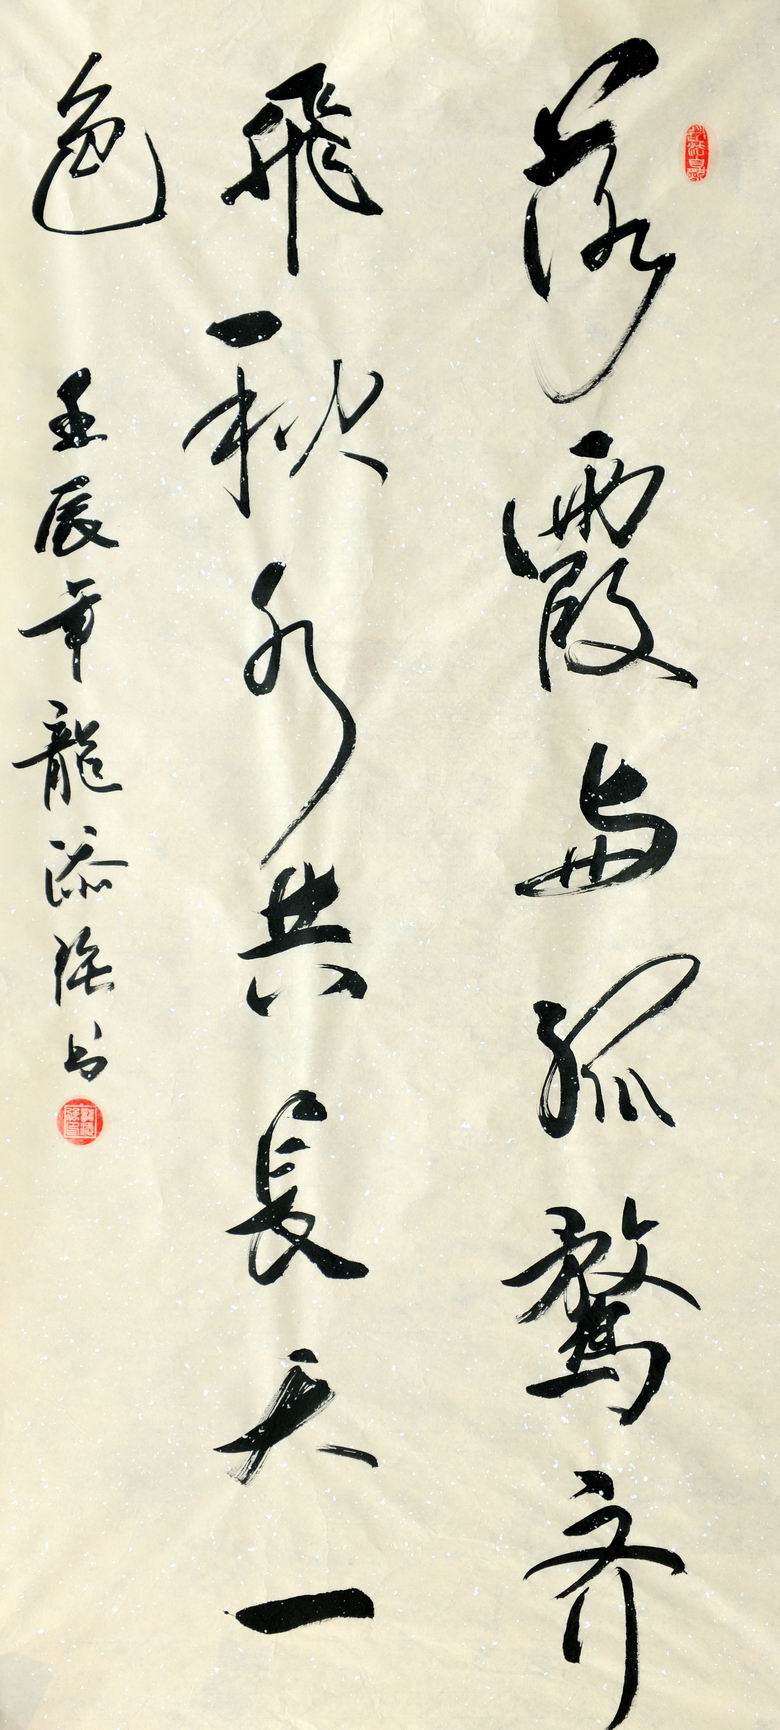 落霞与孤鶩齐
飛秋水共長天一
色
壬辰年龍添书